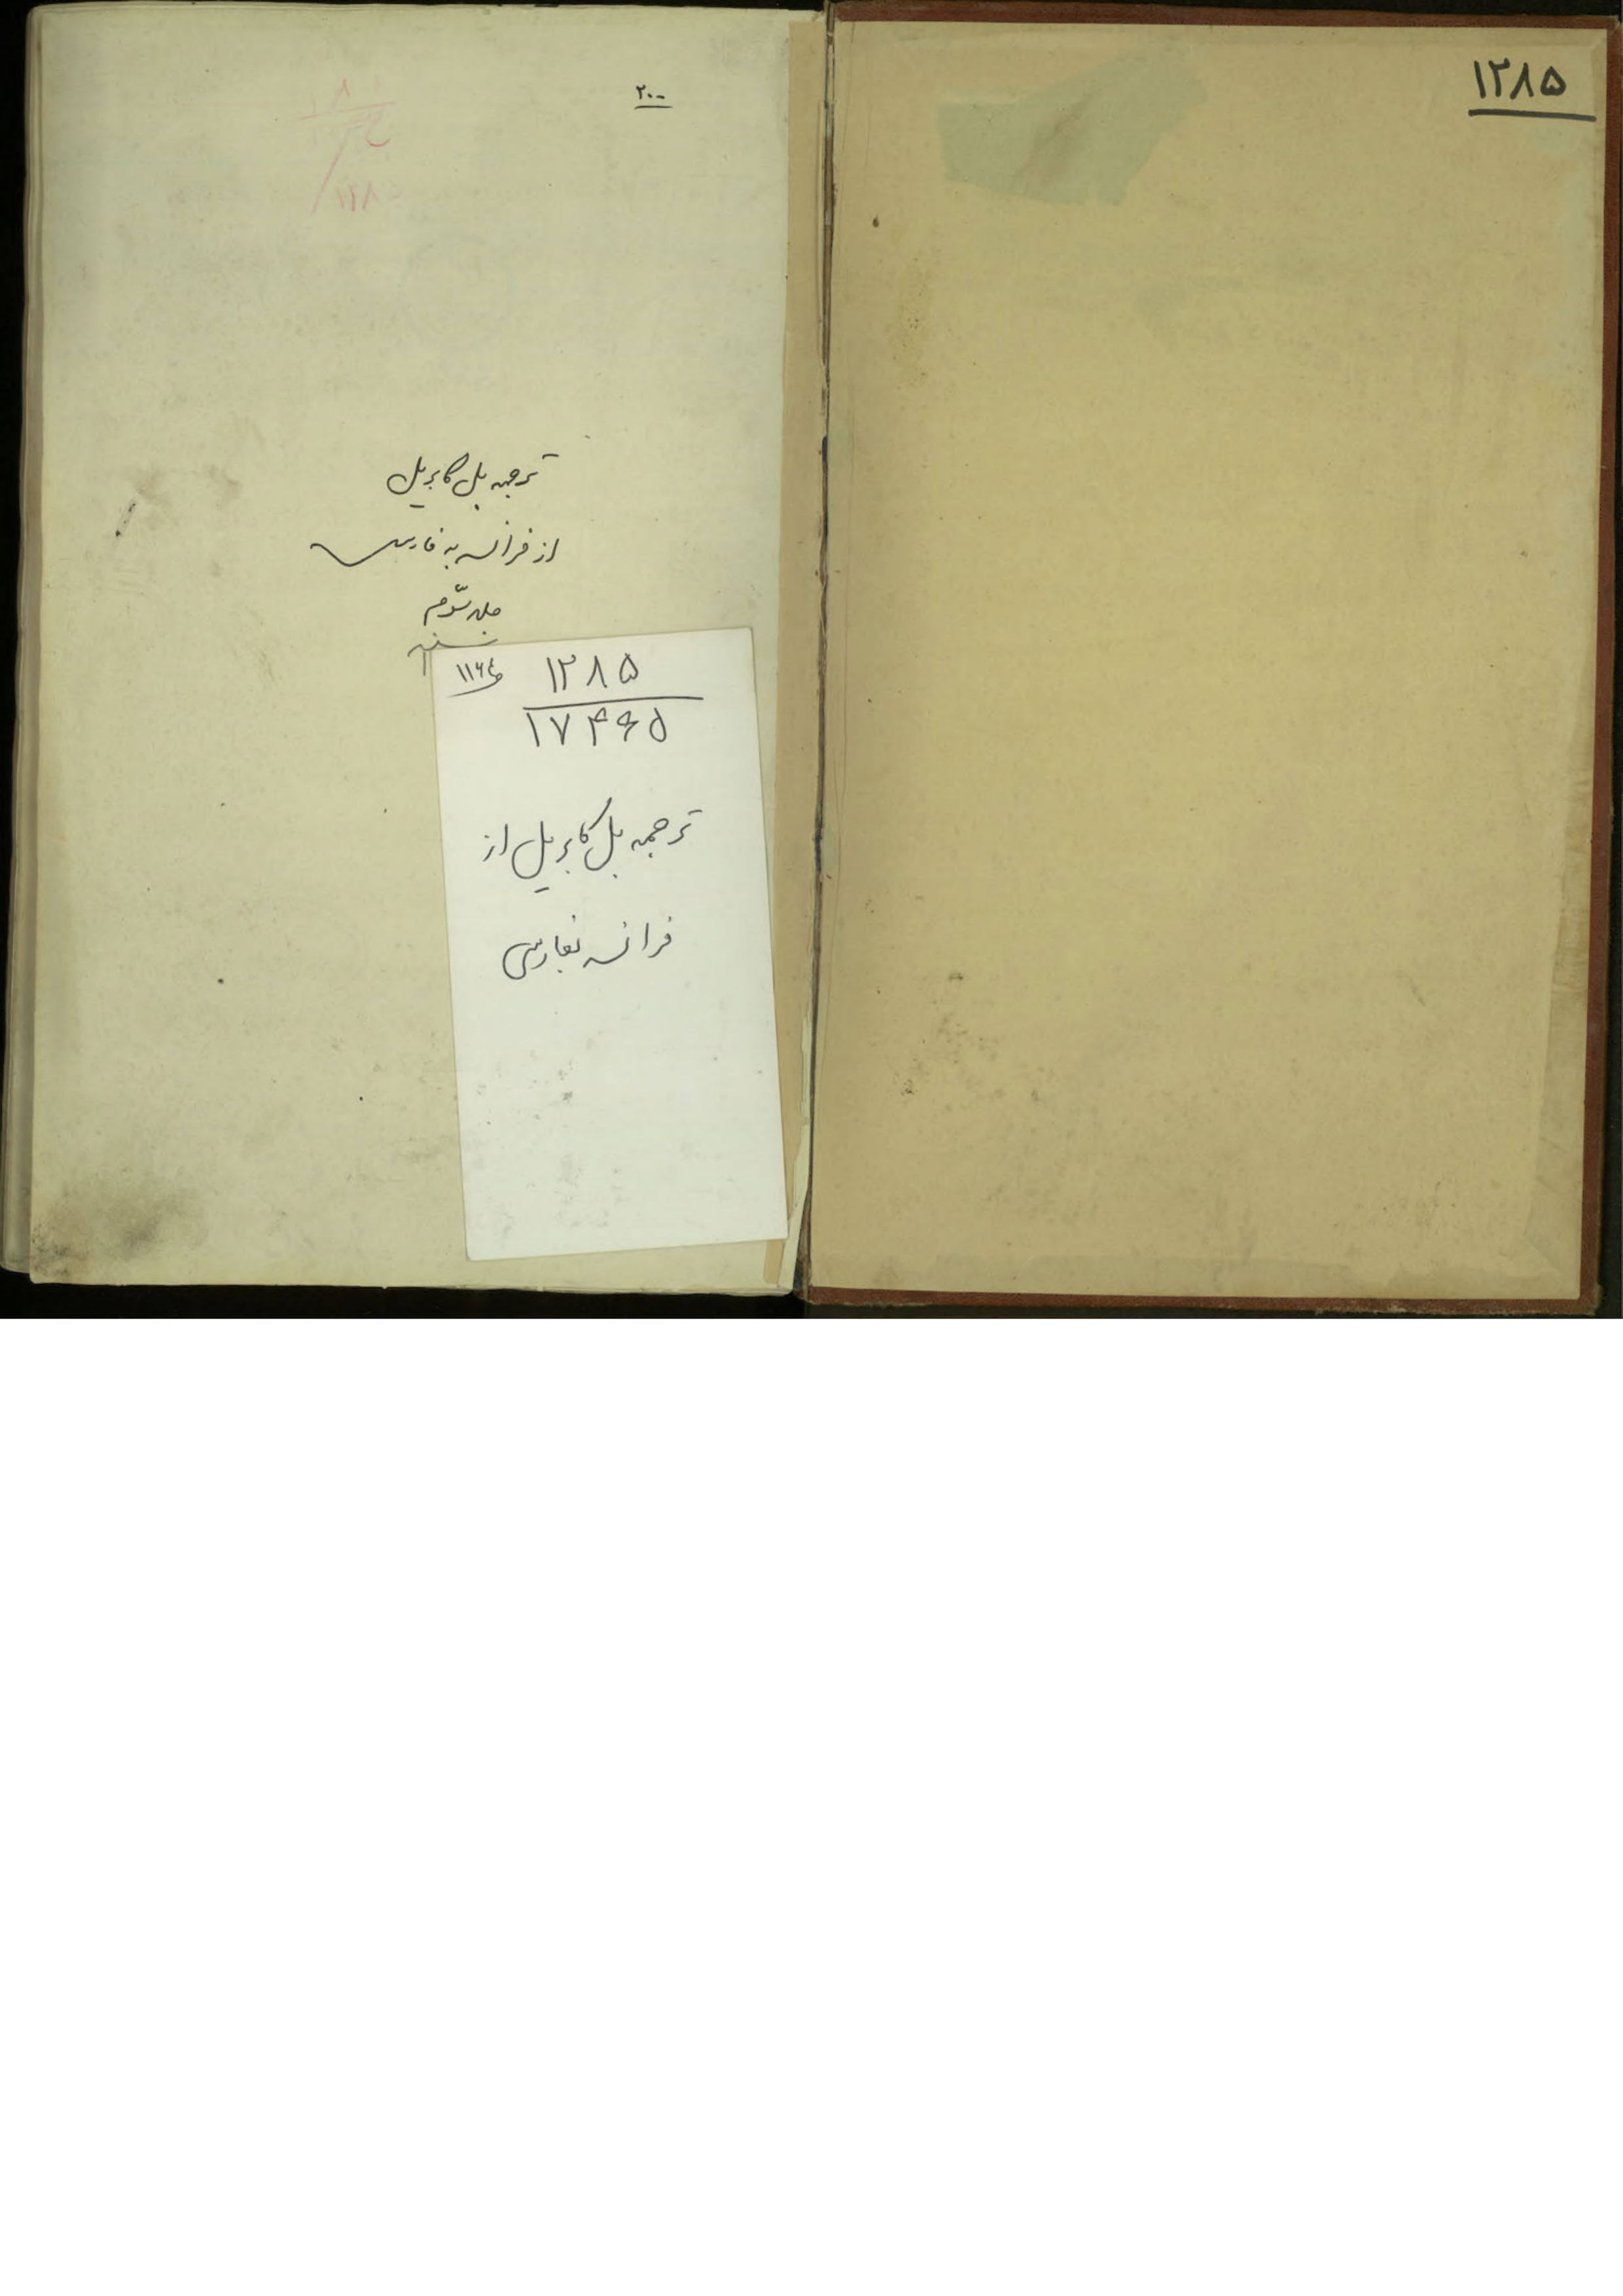 ۱۲۸۵
۲۰۰
ترجمه بل کابریل
از فرانسه به فارسی
جلد سوم
۱۲۸۵
۱۷۴۶۵
ترجمه بل کابریل از
فرانسه بفارسی